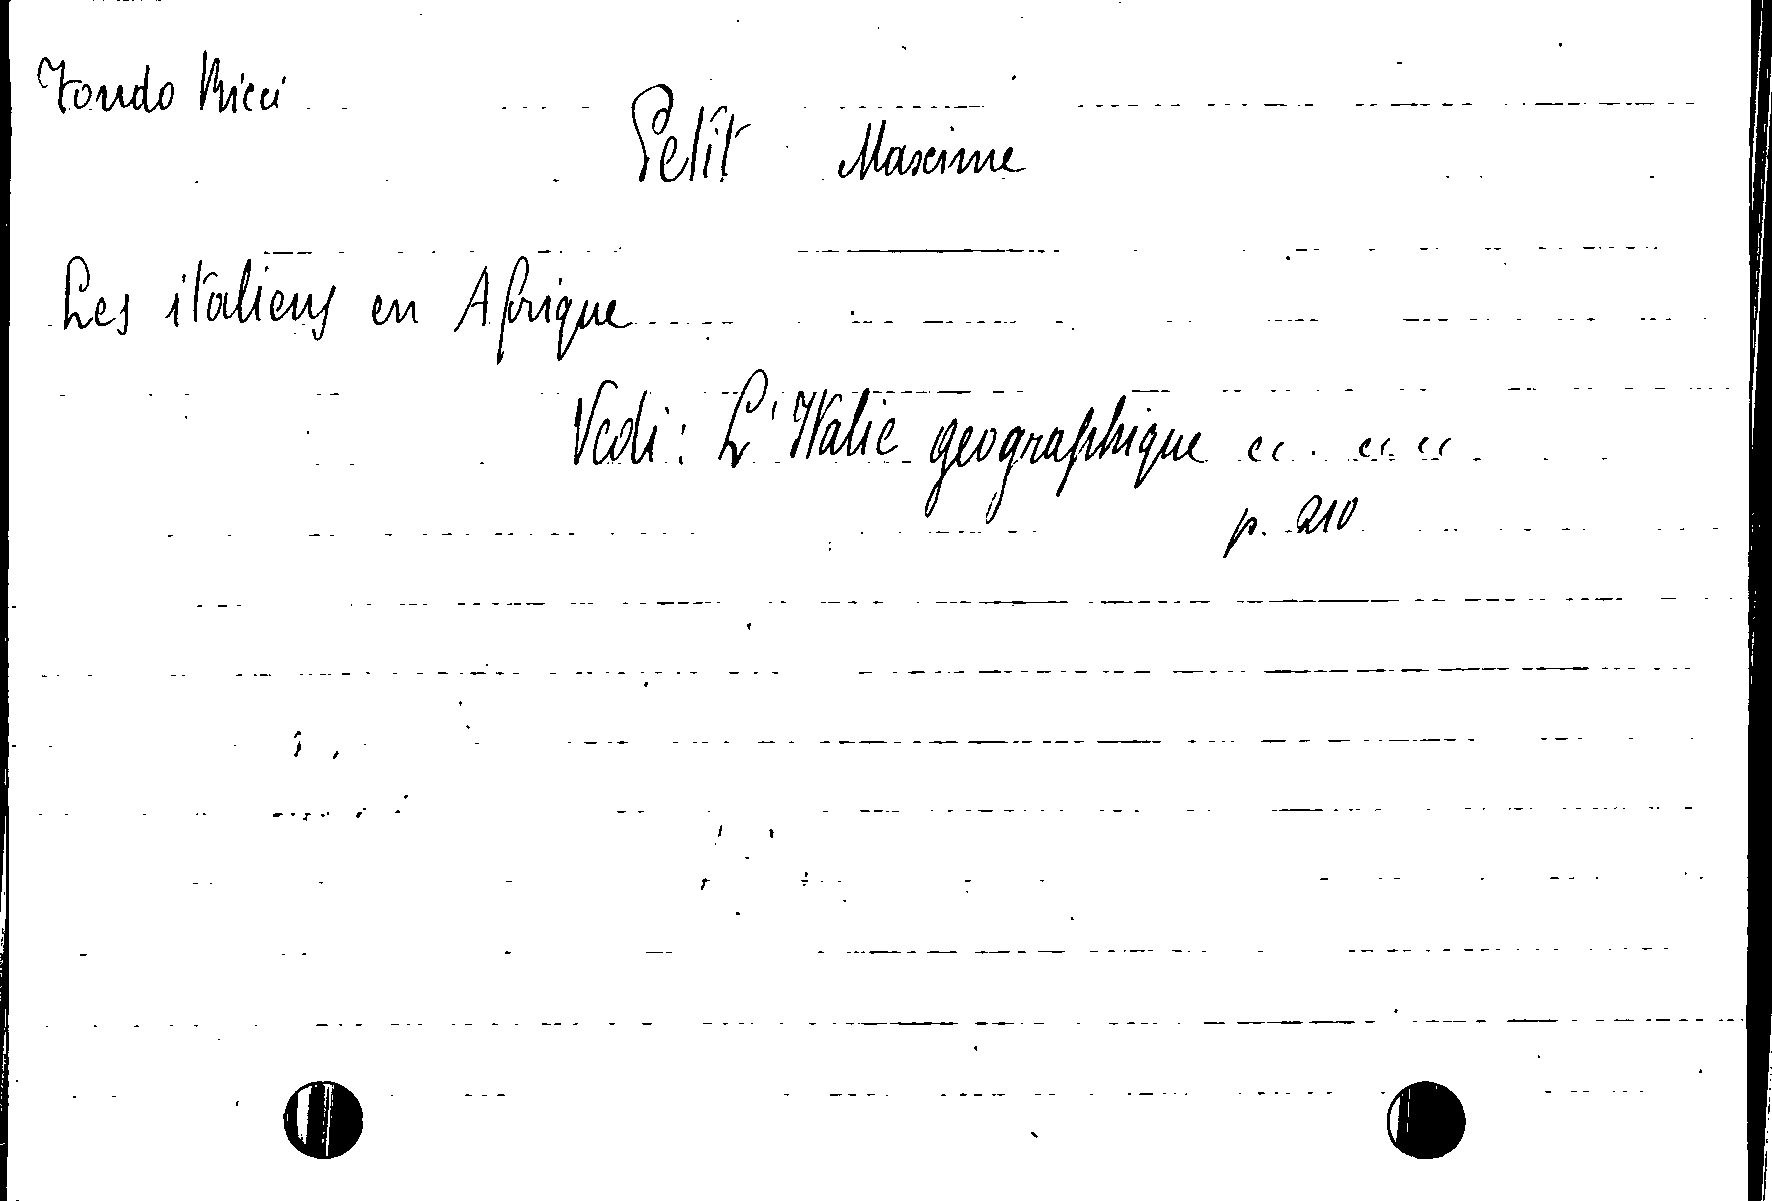 Fondo Ricci
Petit Maxime
Les italiens en Afrique
Vedi: L'Italie geographique cc. cc. cc.
p. 210